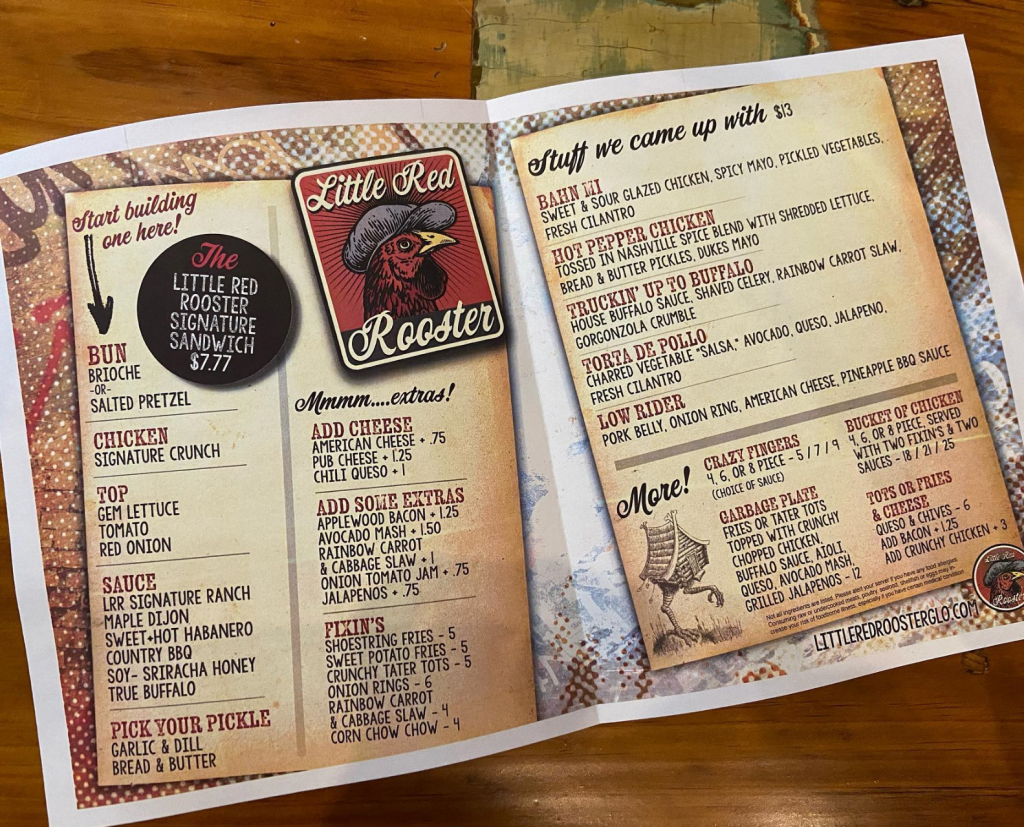 Start building
one here!
The
LITTLE RED
ROOSTER
SIGNATURE
SANDWICH
$7.77
BUN
BRIOCHE
-OR-
SALTED PRETZEL
CHICKEN
SIGNATURE CRUNCH
TOP
GEM LETTUCE
TOMATO
RED ONION
SAUCE
LRR SIGNATURE RANCH
MAPLE DIJON
SWEET+HOT HABANERO
COUNTRY BBQ
SOY- SRIRACHA HONEY
TRUE BUFFALO
PICK YOUR PICKLE
GARLIC & DILL
BREAD & BUTTER
Little Red
Rooster
Mmmm....extras!
ADD CHEESE
AMERICAN CHEESE + .75
PUB CHEESE + 1.25
CHILI QUESO + 1
ADD SOME EXTRAS
APPLEWOOD BACON + 1.25
AVOCADO MASH + 1.50
RAINBOW CARROT
& CABBAGE SLAW + 1
ONION TOMATO JAM + .75
JALAPENOS + .75
FIXIN'S
SHOESTRING FRIES - 5
SWEET POTATO FRIES - 5
CRUNCHY TATER TOTS - 5
ONION RINGS - 6
RAINBOW CARROT
& CABBAGE SLAW - 4
CORN CHOW CHOW - 4
Stuff we came up with $13
BAHN MI
SWEET & SOUR GLAZED CHICKEN, SPICY MAYO, PICKLED VEGETABLES,
FRESH CILANTRO
HOT PEPPER CHICKEN
TOSSED IN NASHVILLE SPICE BLEND WITH SHREDDED LETTUCE,
BREAD & BUTTER PICKLES, DUKES MAYO
TRUCKIN' UP TO BUFFALO
HOUSE BUFFALO SAUCE, SHAVED CELERY, RAINBOW CARROT SLAW,
GORGONZOLA CRUMBLE
TORTA DE POLLO
CHARRED VEGETABLE "SALSA," AVOCADO, QUESO, JALAPENO,
FRESH CILANTRO
LOW RIDER
PORK BELLY, ONION RING, AMERICAN CHEESE, PINEAPPLE BBQ SAUCE
More!
CRAZY FINGERS
4, 6, OR 8 PIECE - 5 / 7 / 9
(CHOICE OF SAUCE)
GARBAGE PLATE
FRIES OR TATER TOTS
TOPPED WITH CRUNCHY
CHOPPED CHICKEN
BUFFALO SAUCE, AIOLI,
QUESO, AVOCADO MASH,
GRILLED JALAPENOS - 12
BUCKET OF CHICKEN
4, 6, OR 8 PIECE, SERVED
WITH TWO FIXIN'S & TWO
SAUCES - 18 / 21 / 25
TOTS OR FRIES
& CHEESE
QUESO & CHIVES - 6
ADD BACON + 1.25
ADD CRUNCHY CHICKEN + 3
Not all ingredients are listed. Please alert your server if you have any food allergies.
Consuming raw or undercooked meats, poultry, seafood, shellfish or eggs may in-
crease your risk of foodborne illness, especially if you have certain medical condition
Little Red
Rooster
LITTLEREDROOSTERGLO.COM